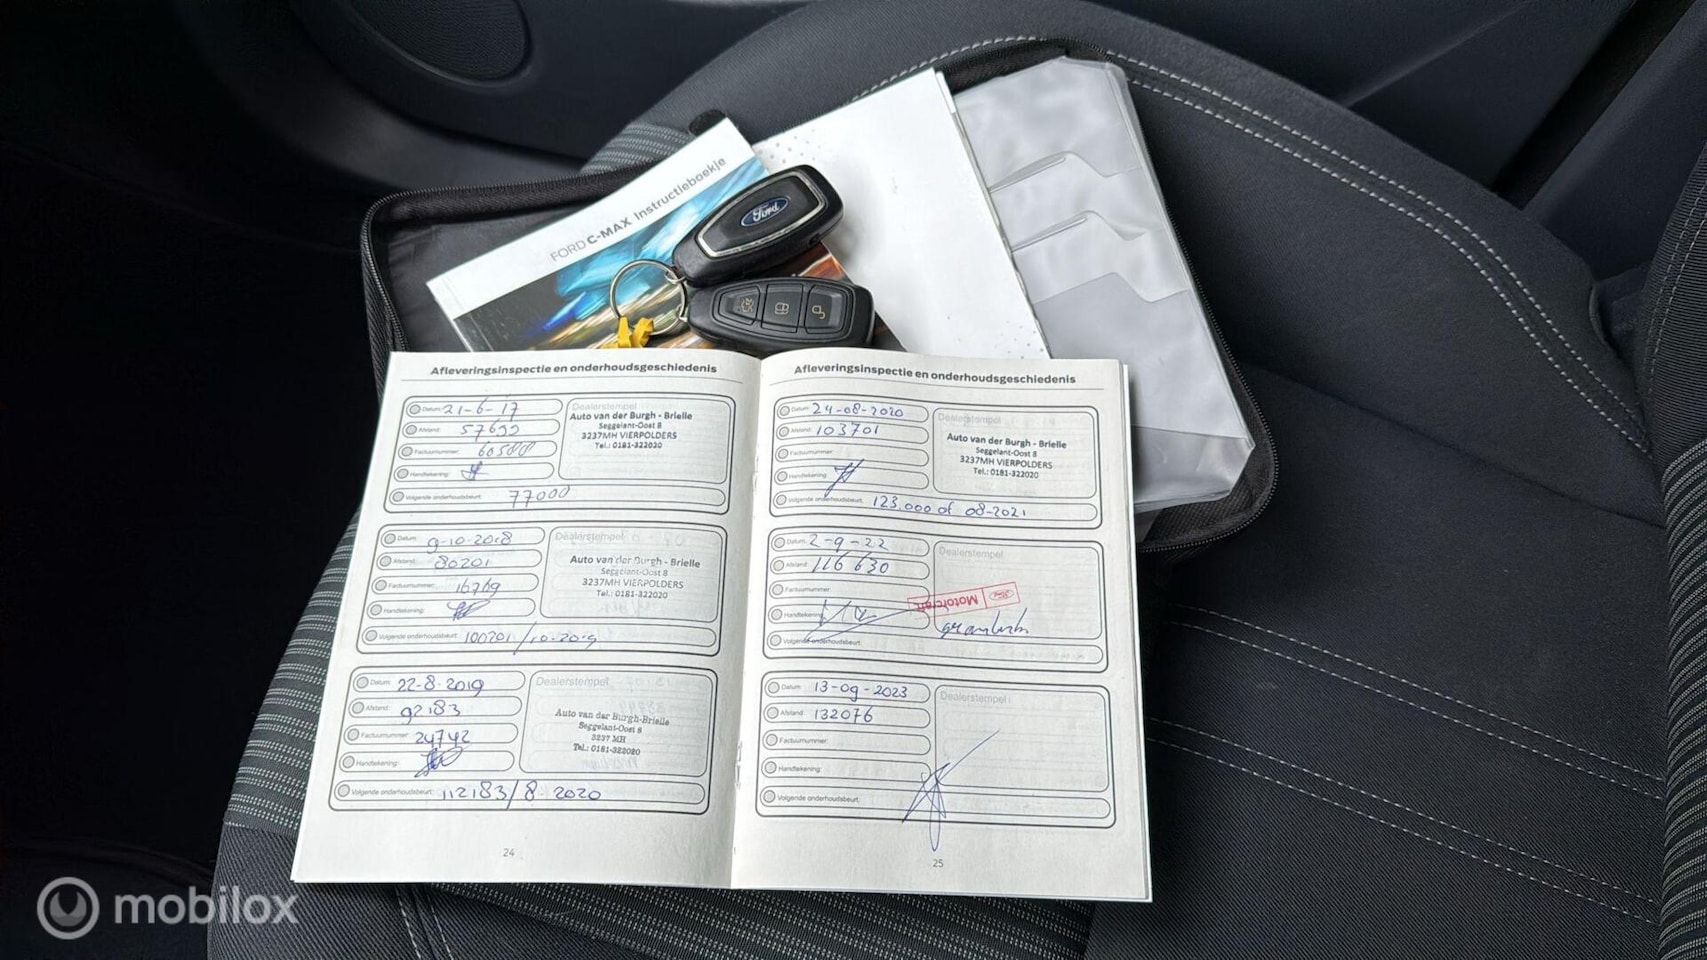 FORD C-MAX Instructieboekje
Ford
Afleveringsinspectie en onderhoudsgeschiedenis
Datum: 21-6-17
Afstand: 57699
Factuurnummer:
Handtekening:
Volgende onderhoudsbeurt: 77000
Dealerstempel
Auto van der Burgh - Brielle
Seggelant-Oost 8
3237MH VIERPOLDERS
Tel.: 0181-322020
Datum: 9-10-2018
Afstand: 80201
Factuurnummer: 16769
Handtekening:
Volgende onderhoudsbeurt: 100201/10-2019
Dealerstempel
Auto van der Burgh - Brielle
Seggelant-Oost 8
3237MH VIERPOLDERS
Tel.: 0181-322020
Datum: 22-8-2019
Afstand: 92183
Factuurnummer: 24742
Handtekening:
Volgende onderhoudsbeurt: 112183/8-2020
Dealerstempel
Auto van der Burgh-Brielle
Seggelant-Oost 8
3237 MH
Tel.: 0181-322020
24
Afleveringsinspectie en onderhoudsgeschiedenis
Datum: 24-08-2020
Afstand: 103701
Factuurnummer:
Handtekening:
Volgende onderhoudsbeurt: 123.000 of 08-2021
Dealerstempel
Auto van der Burgh - Brielle
Seggelant-Oost 8
3237MH VIERPOLDERS
Tel.: 0181-322020
Datum: 2-9-22
Afstand: 116 630
Factuurnummer:
Handtekening:
Volgende onderhoudsbeurt:
Dealerstempel
Ford Motorcraft
Datum: 13-09-2023
Afstand: 132076
Factuurnummer:
Handtekening:
Volgende onderhoudsbeurt:
Dealerstempel
25
mobilox